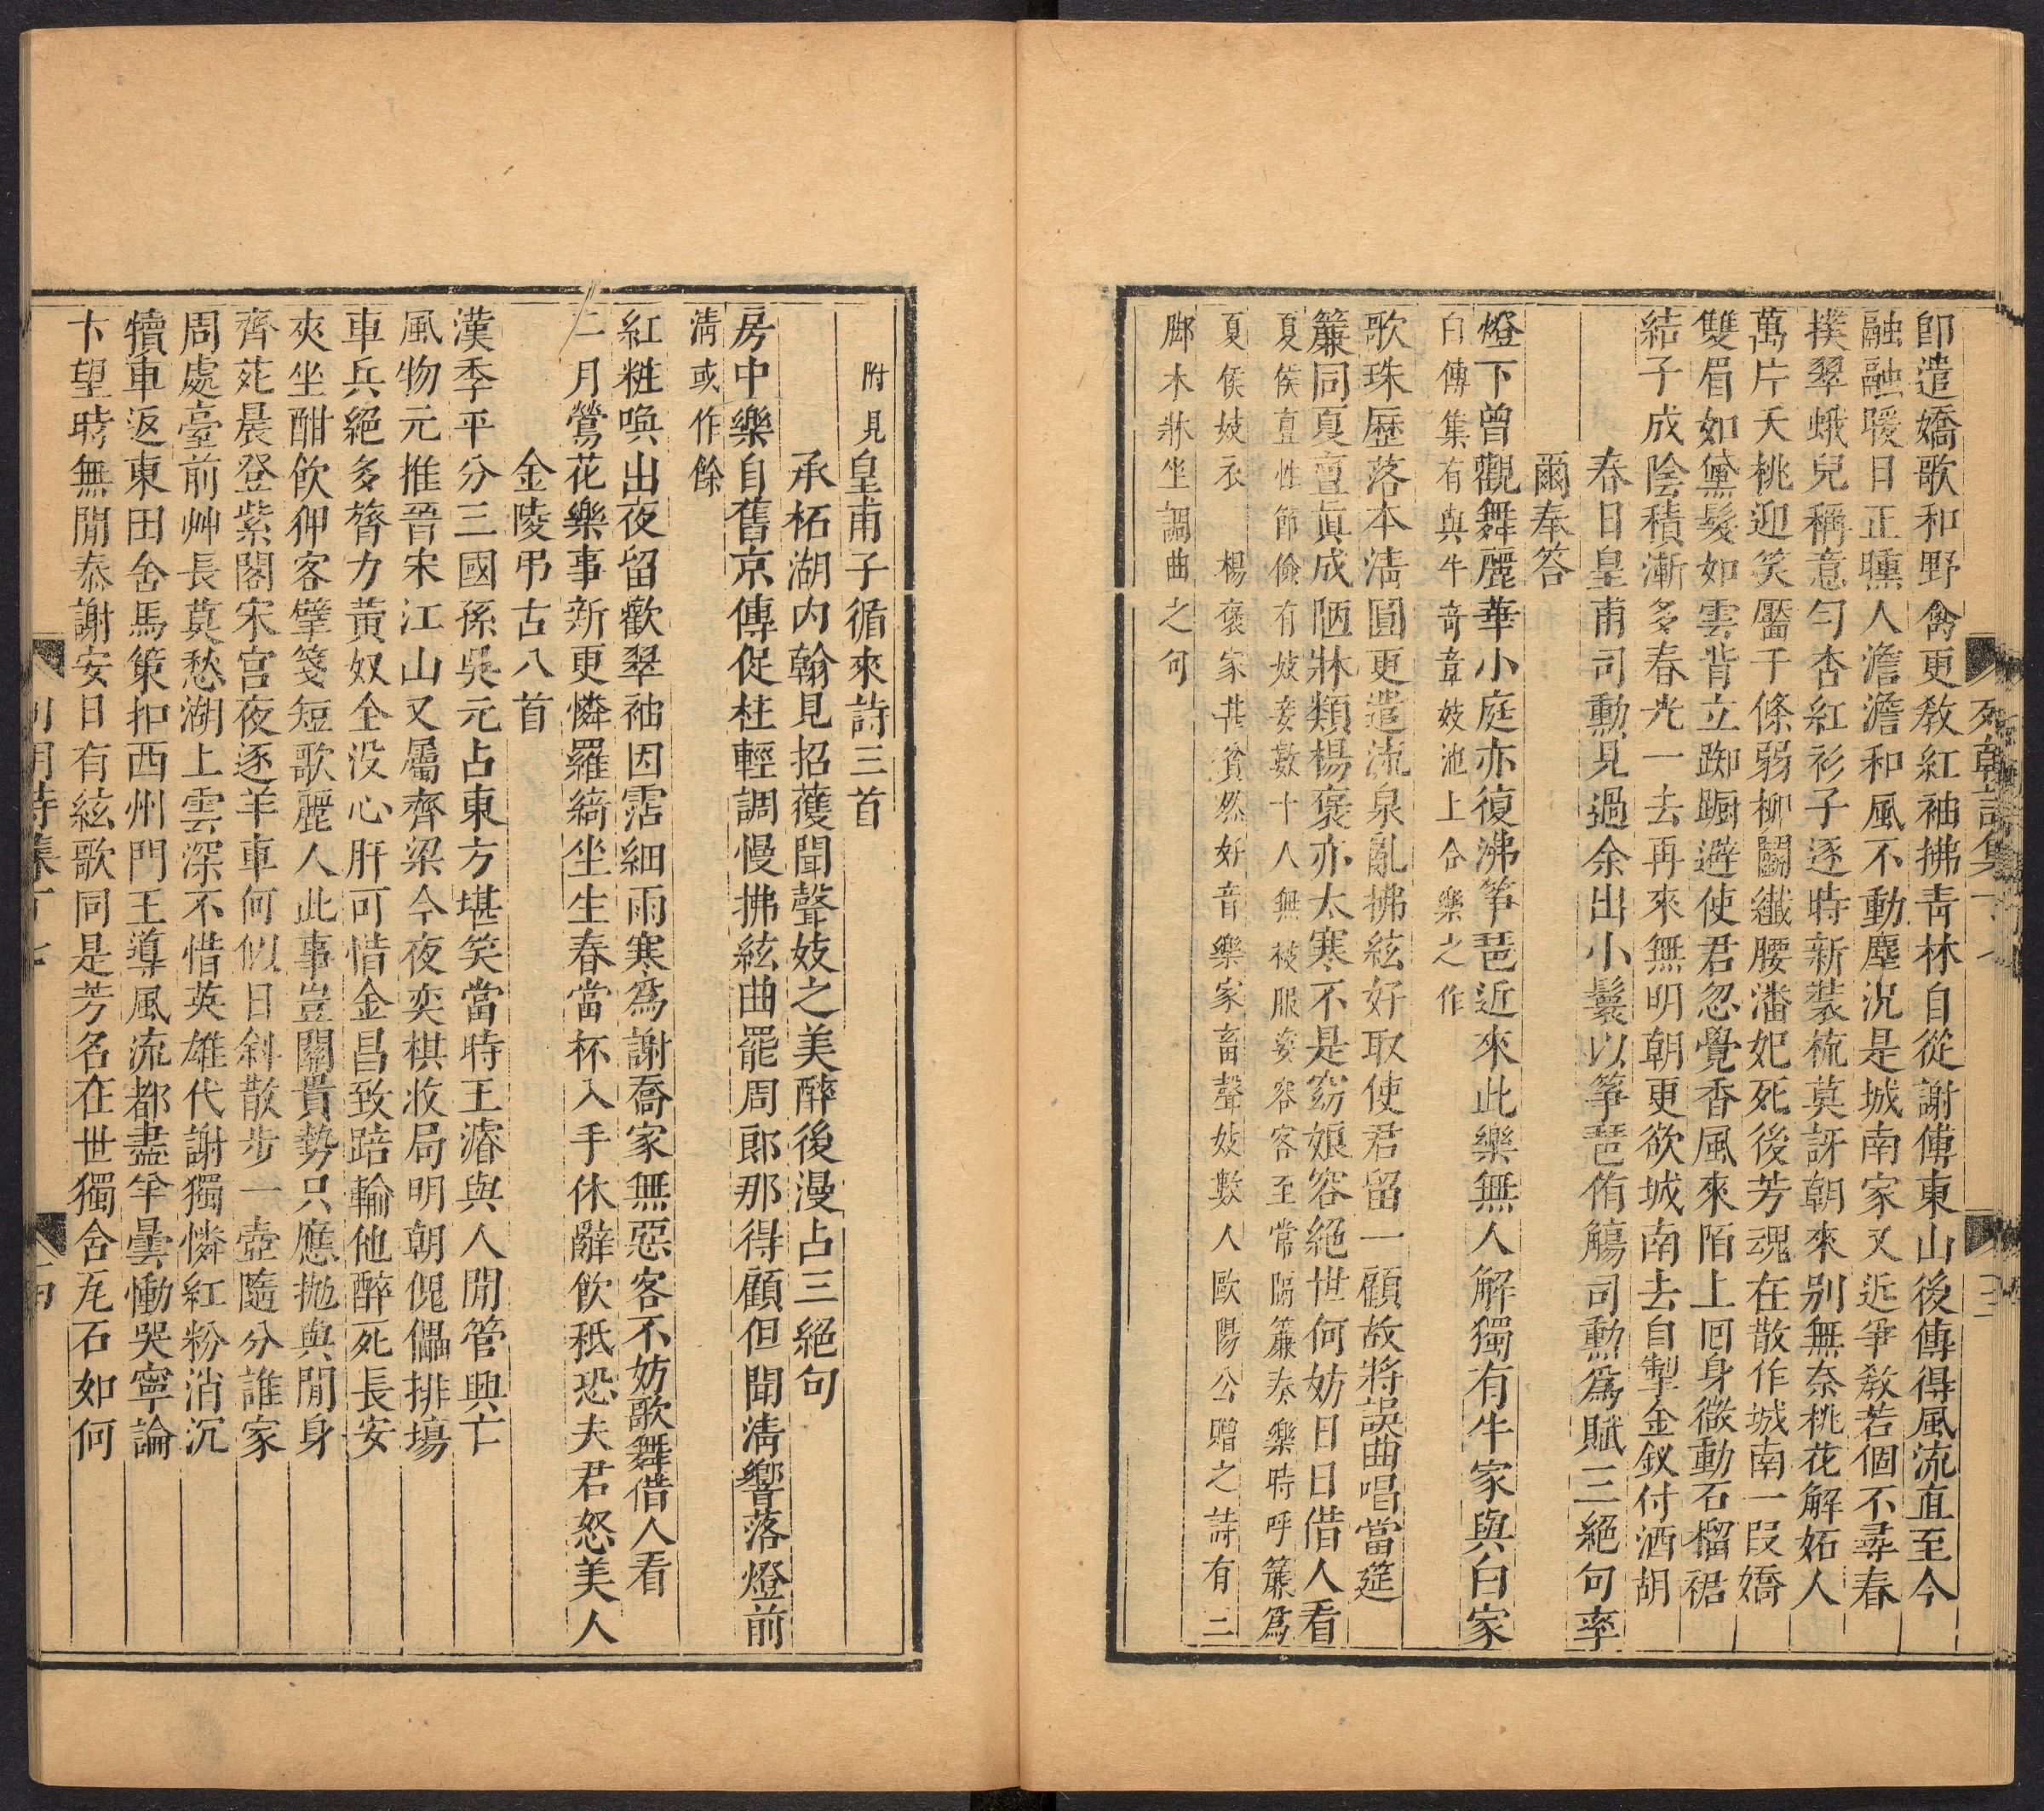 卽遣嬌歌和野禽更敎紅袖拂靑林自從謝傅東山後傳得風流直至今
融融暖日正曛人澹澹和風不動塵況是城南家又近爭敎若個不尋春
撲翠蛾兒稱意勻杏紅衫子逐時新裝梳莫訝朝來別無奈桃花解妬人
萬片夭桃迎笑靨千條弱柳鬬纖腰潘妃死後芳魂在散作城南一段嬌
雙眉如黛髮如雲背立踟蹰避使君忽覺香風來陌上囘身微動石榴裙
結子成陰積漸多春光一去再來無明朝更欲城南去自掣金釵付酒胡
春日皇甫司勳見過余出小鬟以箏琶侑觴司勳爲賦三絕句率
爾奉答
燈下曾觀舞麗華小庭亦復沸箏琶近來此樂無人解獨有牛家與白家
白傅集有與牛奇章妓池上合樂之作
歌珠歷落本淸圓更遣流泉亂拂絃好取使君留一顧故將誤曲唱當筵
簾同夏亶眞成陋牀類楊褒亦太寒不是窈娘容絕世何妨日日借人看
夏侯亶性節儉有妓妾數十人無被服姿容客至常隔簾奏樂時呼簾爲
夏侯妓衣　楊褒家甚貧然好音樂家畜聲妓數人歐陽公贈之詩有三
脚木牀坐調曲之句
附見皇甫子循來詩三首
承柘湖內翰見招獲聞聲妓之美醉後漫占三絕句
房中樂自舊京傳促柱輕調慢拂絃曲罷周郎那得顧但聞淸響落燈前
淸或作餘
紅粧喚出夜留歡翠袖因霑細雨寒爲謝喬家無惡客不妨歌舞借人看
二月鶯花樂事新更憐羅綺坐生春當杯入手休辭飮秖恐夫君怒美人
金陵弔古八首
漢季平分三國孫吳元占東方堪笑當時王濬與人閒管興亡
風物元推晉宋江山又屬齊梁今夜奕棋收局明朝傀儡排場
車兵絕多膂力黃奴全没心肝可惜金昌致踣輸他醉死長安
夾坐酣飮狎客擘箋短歌麗人此事豈關貴勢只應拋與閒身
齊苑晨登紫閣宋宮夜逐羊車何似日斜散步一壺隨分誰家
周處臺前艸長莫愁湖上雲深不惜英雄代謝獨憐紅粉消沉
犢車返東田舍馬策扣西州門王導風流都盡羊曇慟哭寧論
卞望時無閒泰謝安日有絃歌同是芳名在世獨舍瓦石如何